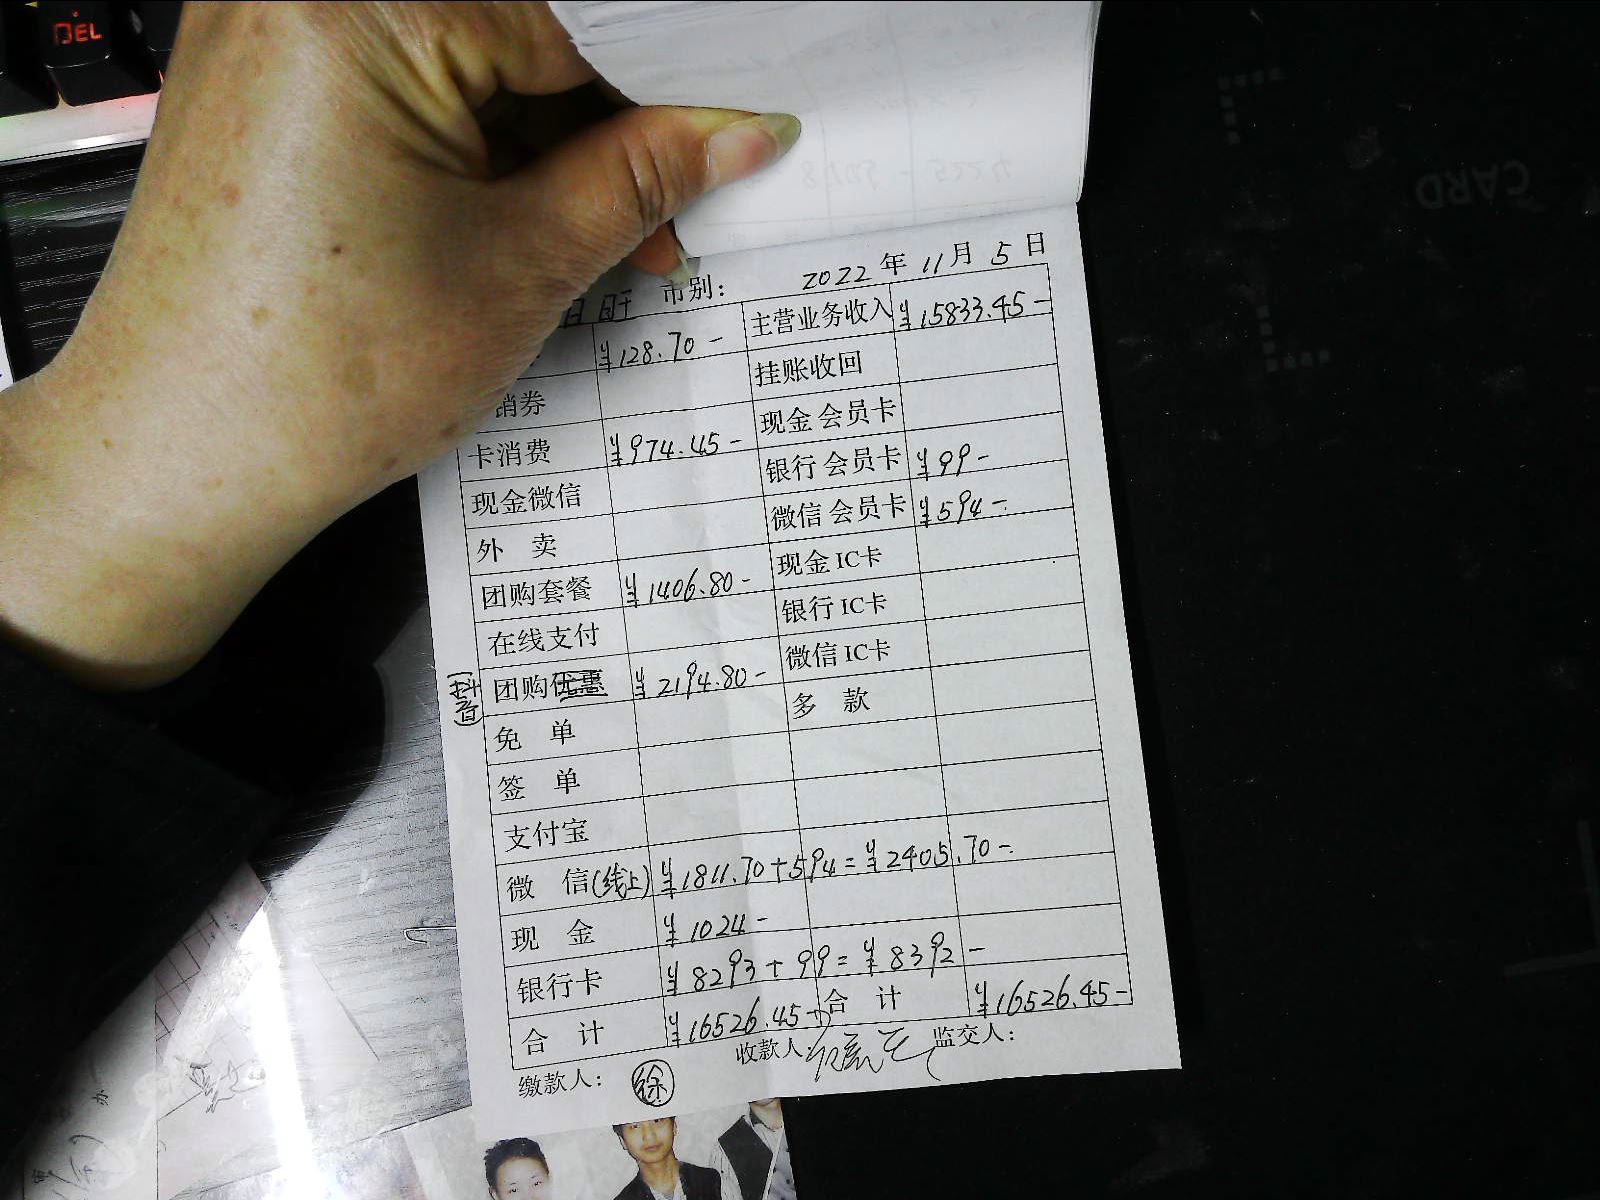 DEL
CARD
市别： 2022 年 11 月 5 日
¥128.70- 主营业务收入 ¥15833.45-
销券 挂账收回
卡消费 ¥974.45- 现金会员卡
现金微信 银行会员卡 ¥99-
外 卖 微信会员卡 ¥594-
团购套餐 ¥1406.80- 现金IC卡
在线支付 银行IC卡
(抖音) 团购优惠 ¥2194.80- 微信IC卡
免 单 多 款
签 单
支付宝
微 信(线上) ¥1811.70+594=¥2405.70-
现 金 ¥1024-
银行卡 ¥8293+99=¥8392-
合 计 ¥16526.45- 合 计 ¥16526.45-
缴款人： 徐 收款人： 监交人：